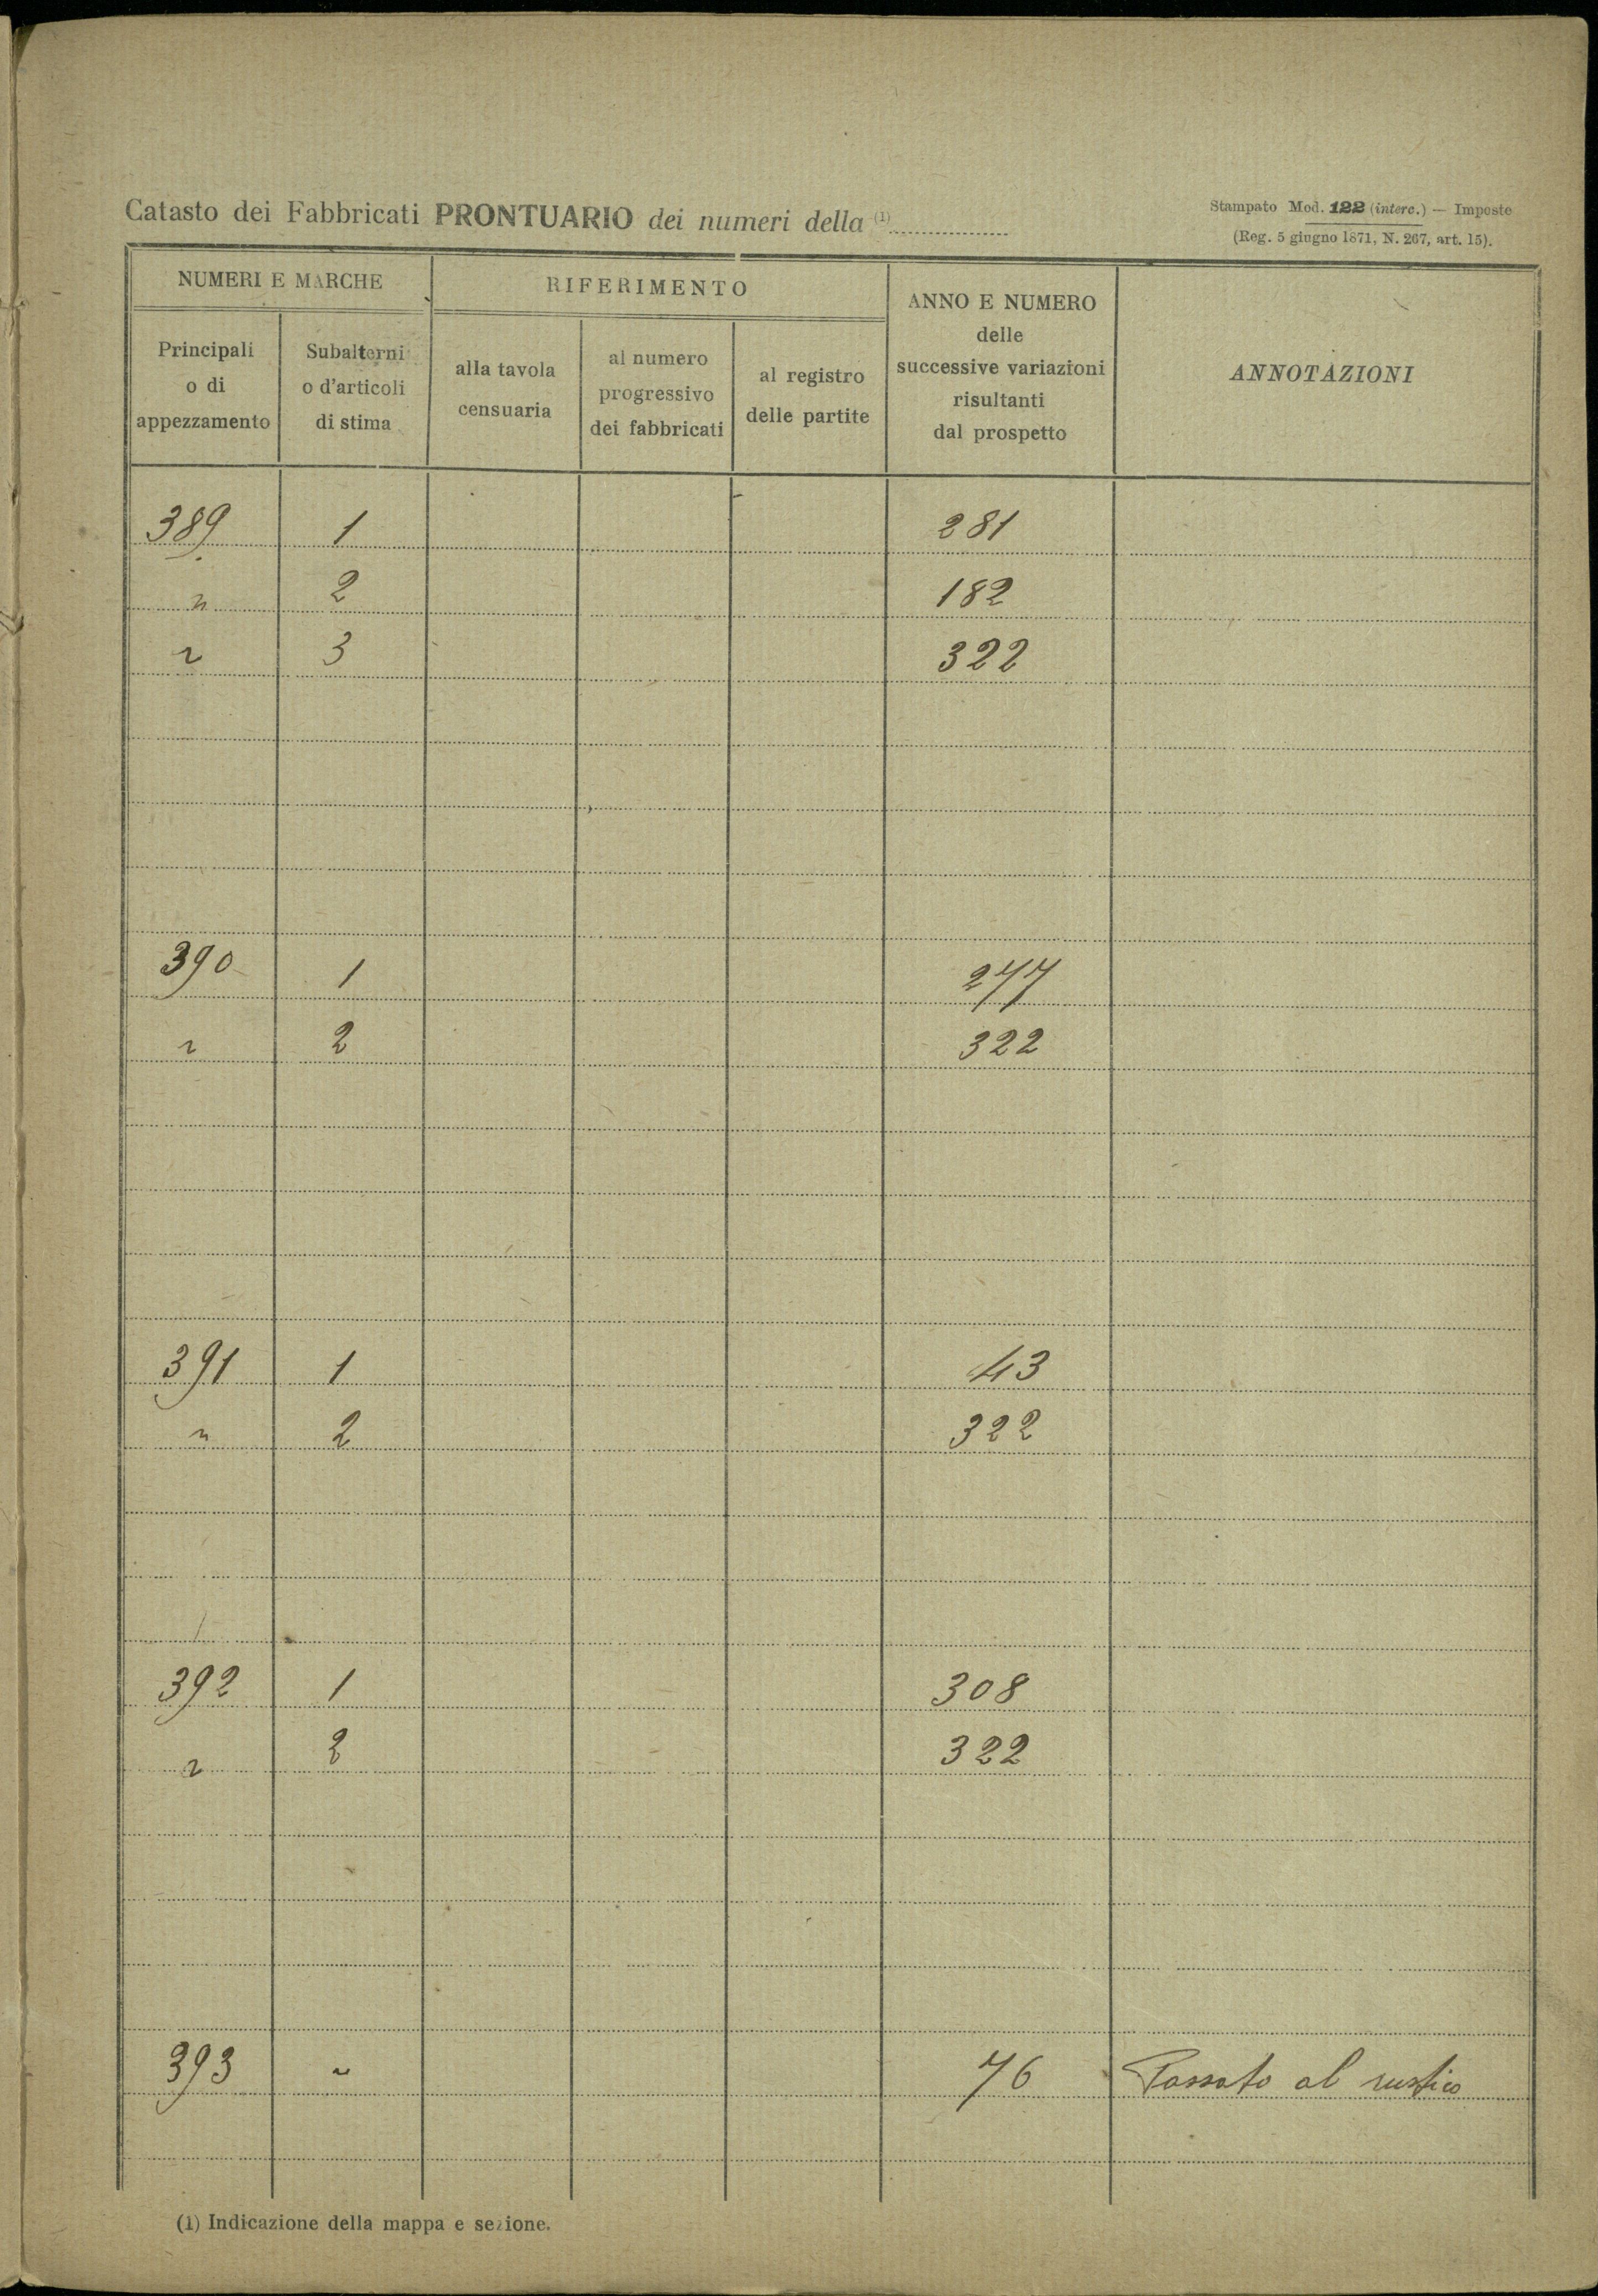 Catasto dei Fabbricati PRONTUARIO dei numeri della (1)
Stampato Mod. 122 (interc.) — Imposte
(Reg. 5 giugno 1871, N. 267, art. 15).
NUMERI E MARCHE
RIFERIMENTO
ANNO E NUMERO
delle
successive variazioni
risultanti
dal prospetto
ANNOTAZIONI
Principali
o di
appezzamento
Subalterni
o d'articoli
di stima
alla tavola
censuaria
al numero
progressivo
dei fabbricati
al registro
delle partite
389 1 281
" 2 182
" 3 322
390 1 277
" 2 322
391 1 43
" 2 322
392 1 308
" 2 322
393 " 76 Passato al rustico
(1) Indicazione della mappa e sezione.